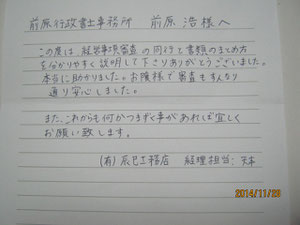 前原行政書士事務所 前原 浩様へ
この度は、経営事項審査の同行と書類のまとめ方
を分かりやすく説明して下さりありがとうございました。
本当に助かりました。お陰様で審査もすんなり
通り安心しました。
また、これからも何かつまずく事があれば宜しく
お願い致します。
(有)辰巳工務店 経理担当:
2014/11/26